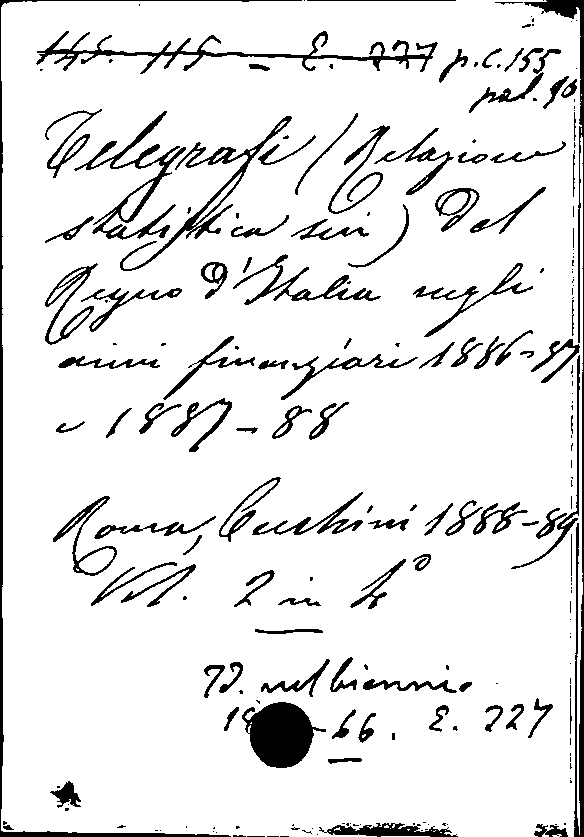 145. 115 - E. 227 p.c. 155
pal. 96
Telegrafi (Relazione
statistica sui) del
Regno d'Italia negli
anni finanziari 1886-87
e 1887-88
Roma, Cecchini 1888-89
Vol. 2 in 4°
Id. nel biennio
18 -66. E. 227